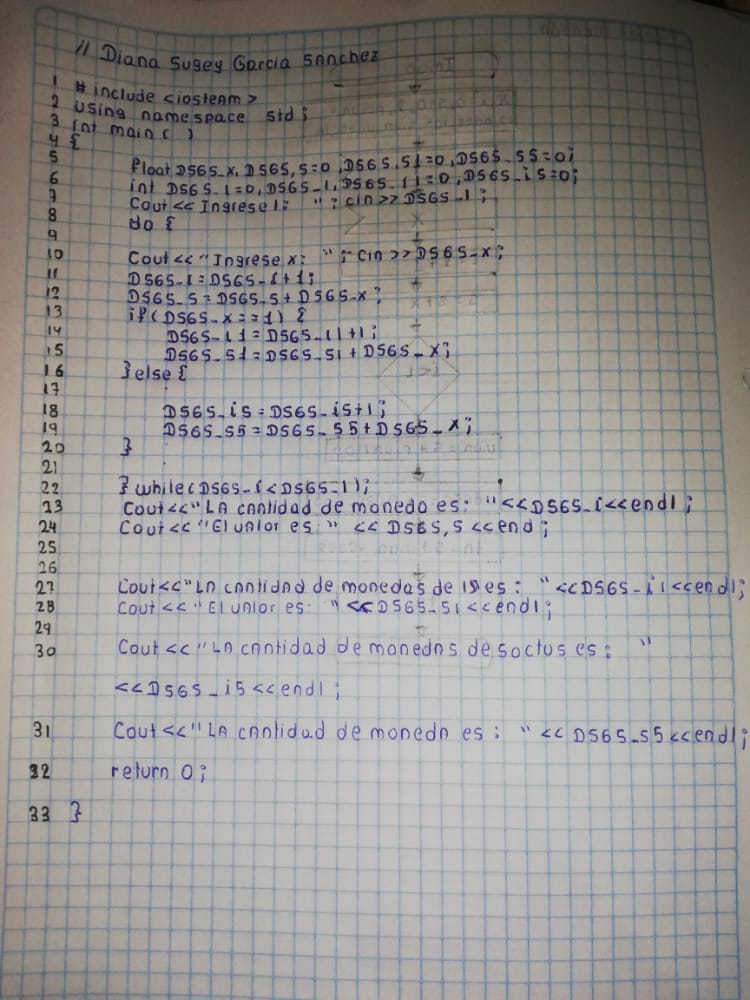 // Diana Sugey Garcia Sanchez
1 # include <iosteam>
2 using namespace std;
3 int main( )
4 {
5 float DSGS_x, DSGS,S=0, DSGS,S1=0, DSGS_S5=0;
6 int DSGS_i=0, DSGS_l, DSGS_i1=0, DSGS_i5=0;
7 Cout<< Ingrese l: "; cin>> DSGS_l;
8 do {
9
10 Cout<< "Ingrese x: "; cin>>DSGS_x;
11 DSGS_i=DSGS_i+1;
12 DSGS_S=DSGS_S+DSGS_x;
13 if(DSGS_x==1) {
14 DSGS_i1=DSGS_i1+1;
15 DSGS_S1=DSGS_S1+DSGS_x;
16 }else{
17
18 DSGS_i5=DSGS_i5+1;
19 DSGS_S5=DSGS_S5+DSGS_x;
20 }
21
22 }while(DSGS_i<DSGS_l);
23 Cout<<"LA cantidad de moneda es: "<<DSGS_i<<endl;
24 Cout<<"El valor es:" << DSGS,S<<end;
25
26
27 Cout<<"La cantidad de monedas de es: "<<DSGS_i1<<endl;
28 Cout<< "El valor es: "<<DSGS_S1<<endl;
29
30 Cout<<"LA cantidad de monedas de soctus es: "
<<DSGS_i5<<endl;
31 Cout<<"LA cantidad de moneda es: "<<DSGS_S5<<endl;
32 return 0;
33 }